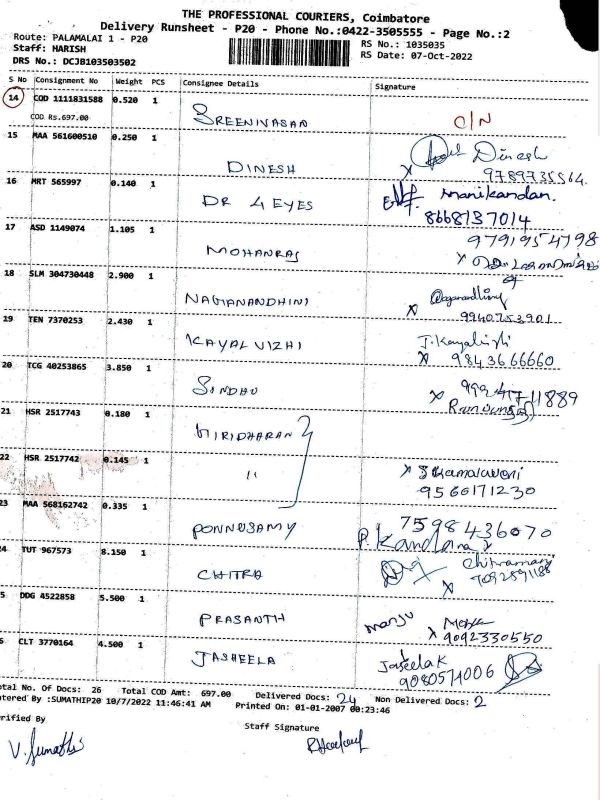 THE PROFESSIONAL COURIERS, Coimbatore
Delivery Runsheet - P20 - Phone No.:0422-3505555 - Page No.:2
Route: PALAMALAI 1 - P20
Staff: HARISH
DRS No.: DCJB103503502
RS No.: 1035035
RS Date: 07-Oct-2022
S No Consignment No Weight PCS Consignee Details Signature
14 COD 1111831588 0.520 1 SREENIVASAN C/N
COD Rs.697.00
15 MAA 561600510 0.250 1 DINESH Dinesh
9789735564
16 MRT 565997 0.140 1 DR 4 EYES Manikandan.
8668137014
17 ASD 1149074 1.105 1 MOHANRAJ 9791954798
18 SLM 304730448 2.900 1 NAGANANDHINI
9940753901
19 TEN 7370253 2.430 1 KAYALVIZHI J. Kayalvizhi
X 9843666660
20 TCG 40253865 3.850 1 SINDHU
21 HSR 2517743 0.180 1 GIRIDHARAN
22 HSR 2517742 0.145 1 "
9560171230
23 MAA 568162742 0.335 1 PONNUSAMY 7598436070
24 TUT 967573 8.150 1 CHITRA
5 DDG 4522858 5.500 1 PRASANTH Manju
X 9092330550
6 CLT 3770164 4.500 1 JASHEELA Jaseela K
9080574006
otal No. Of Docs: 26 Total COD Amt: 697.00 Delivered Docs: 24 Non Delivered Docs: 2
ntered By :SUMATHIP20 10/7/2022 11:46:41 AM Printed On: 01-01-2007 00:23:46
erified By Staff Signature
V. Sumathi